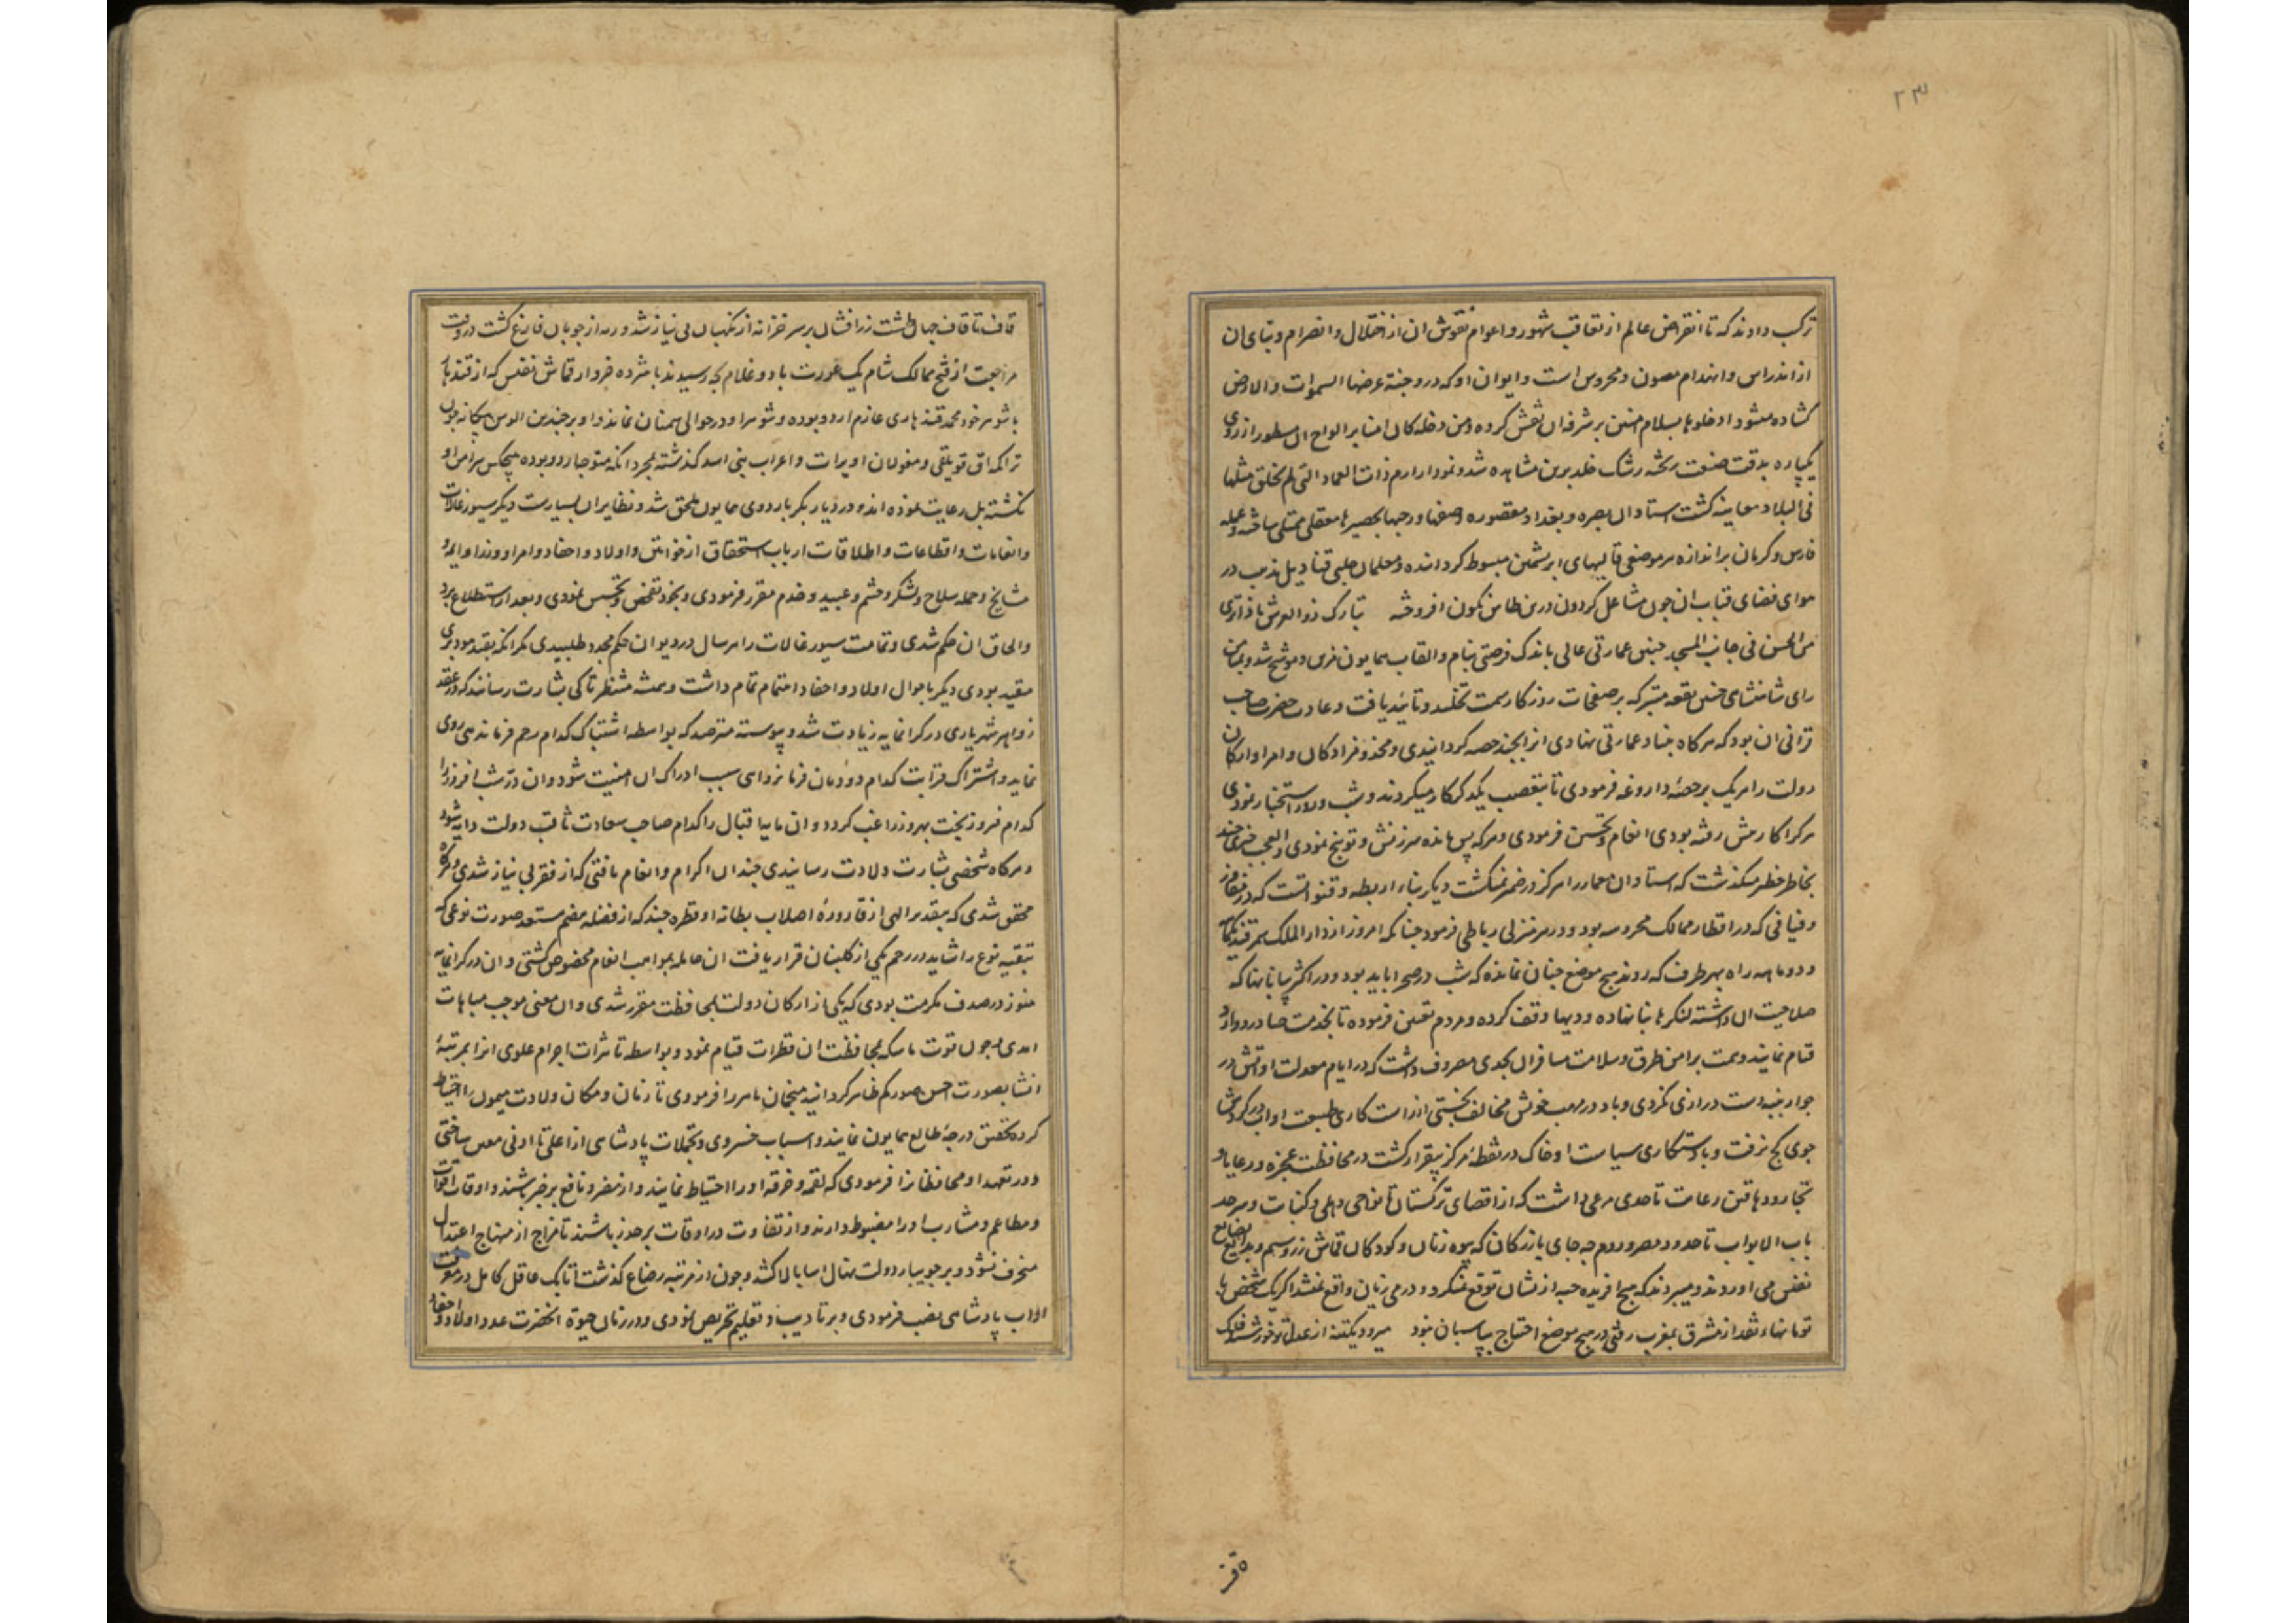 ۲۳
ترکیب دادند که تا انقراض عالم از تعاقب شهور و اعوام نقوش ان از اختلال و انصرام و بنای ان
از اندراس و انهدام مصون و محروس است و ایوان او که در و جنة عرضها السموات والارض
کشاده میشود ادخلوها بسلام امنین بر شرفه ان نقش کرده و من دخله کان امنا بر الواح ان مسطور از روی
یکپاره بدقت صنعت رشک خلد برین مشاهده شد و نمودار ارم ذات العماد التی لم یخلق مثلها
فی البلاد معاینه کشت استادان بصره و بغداد مقصوره و صفها و رجبها بحصیرها معقلی ساخته و عمله
فارس و کرمان بر اندازه هر موضعی قالیهای ابریشمین مبسوط کردانیده و معلمان حلبی قنادیل مذهب در
هوای فضای قباب ان چون مشاعل کردون درین طاس نکون افروخته تبارک ذو العرش
من الحسن فی جانب المسجد چنین عمارتی عالی باندک فرصتی بنام و القاب همایون مزین و موشح شد و بمیامن
رای شاهنشاهی چنین بقعه متبرکه بر صفحات روزکار سمت تخلید و تابید یافت و عادت حضرت صاحب
قرانی ان بود که هرکاه بنیاد عمارتی نهادی انرا بچند حصه کردانیدی و مخدوم زادکان و امرا و ارکان
دولت را هریک بر حصهٔ داروغه فرمودی تا بتعصب یکدیکر کار میکردند و شب و روز استخبار نمودی
هرکرا کارش رفته بودی انعام و تحسین فرمودی و هرکه پس مانده سرزنش و توبیخ نمودی و العجب چیزی چند
بخاطر خطیر میکذشت که استادان معمار را هرکز در ضمیر نمیکشت دیکر بناء اربطه و قنوات است که در مفاوز
و فیافی که در اقطار ممالک محروسه بود و در هر منزلی رباطی فرمود چنانکه امروز از دار الملک سمرقند یکماهه
و دو ماهه راه بهر طرف که روند هیچ موضع چنان نمانده که شب در صحرا باید بود و در اکثر بیابانها که
صلاحیت ان داشته لنکرها بنا نهاده و دیها وقف کرده و مردم تعیین فرموده تا بخدمت صادر و وارد
قیام نمایند و همت بر امن طرق و سلامت مسافران بحدی مصروف داشت که در ایام معدلت او اتش در
جوار پنبه دست درازی نکردی و باد در مهب خویش مخالف نجستی از راست کاری طبیعت او اب در کردش
جوی کج نرفت و باستکاری سیاست او خاک در نقطهٔ مرکز بیقرار کشت در محافظت عجزه و رعایا و
تجار و دهاقین رعایت تا حدی مرعی داشت که از اقصای ترکستان تا نواحی دهلی و کنبات و سرحد
باب الابواب تا حدود مصر و روم چه جای بازرکان که بیوه زنان و کودکان قماش زر و سیم و بضایع
نفیس می اوردند و میبردند که هیچ افریده حبه از نشان توقع نمیکرد و درمی زیان واقع نمیشد اکر یک شخص با
تومانهاء نقد از مشرق بمغرب رفتی در هیچ موضع احتیاج بپاسبان نبود
قاف تا قاف جهان طشت زر افشان بر سر خزانه از نکهبان بی نیاز شد و رمه از چوپان فارغ کشت در وقت
مراجعت از فتح ممالک شام یک عورت با دو غلام بچه رسیدند با شرده خروار قماش نفیس که از قندهار
با شوهر خود محمد قندهاری عازم اردو بوده و شوهر او در حوالی سمنان نمانده و او بر چندین الوس بیکانه چون
تراکمه اق قویلقی و مغولان اویرات و اعراب بنی اسد کذشته بمجرد انکه متوجه اردو بوده هیچکس پیرامن او
نکشته بل رعایت نموده اند و در دیار بکر باردوی همایون ملحق شد و نظایر ان بسیارست دیکر سیورغالات
و انعامات و اقطاعات و اطلاقات ارباب استحقاق از خواتین و اولاد و احفاد و امرا و وزرا و ایمه و
مشایخ و حمله سلاح و لشکر و حشم و عبید و خدم مقرر فرمودی و بخود تفحص و تجسس نمودی و بعد از استطلاع
والحاق ان حکم شدی و تمامت سیورغالات را هر سال در دیوان حکم مجدد طلبیدی مکر انکه بقید موبدی
مقید بودی دیکر باحوال اولاد و احفاد اهتمام تمام داشت و همیشه منتظر تا کی بشارت رسانند که در عقد
زواهر شهریاری در کرانمایه زیادت شد و پیوسته مترصد که بواسطه اشتباک کدام رحم فرماندهی روی
نماید و اشتراک قرابت کدام دودمان فرمانروای سبب ادراک ان امنیت شود و ان در شب افروز را
کدام فیروز بخت بهروز راغب کردد و ان مایه اقبال را کدام صاحب سعادت ثاقب دولت دایه شود
و هرکاه شخصی بشارت ولادت رسانیدی چندان اکرام و انعام یافتی که از فقر بی نیاز شدی و هرکاه
محقق شدی که بتقدیر الهی از قارورهٔ اصلاب بطانه او قطره چند که از فضله هضم مستعد صورت نوعی که
تبقیه نوع را شاید در رحم یکی از کلبنان قرار یافت ان حامله بمواهب انعام مخصوص کشتی و ان در کرانمایه
هنوز در صدف مکرمت بودی که یکی از ارکان دولت بمحافظت مقرر شدی و ان معنی موجب مباهات
امدی و چون قوت ماسکه بمحافظت ان قطرات قیام نمود و بواسطه تاثیرات اجرام علوی انرا بمرتبهٔ
انشا بصورت احسن صورکم ظاهر کردانید منجمان ماهر را فرمودی تا زمان و مکان ولادت میمون را احتیاط
کرده تحقیق درجهٔ طالع همایون نمایند و اسباب خسروی و تجملات پادشاهی از اعلی تا ادنی معین ساختی
و در تعهد او محافظانرا فرمودی که لقمه و خرقه او را احتیاط نمایند و از مضر و نافع بر خبر باشند و اوقات اقوات
و مطاعم و مشارب او را مضبوط دارند و از تفاوت در اوقات بر حذر باشند تا مزاج از منهاج اعتدال
منحرف نشود و بر جویبار دولت نهال اسا بالا کشد و چون از مرتبه رضاع کذشت اتابک عاقل کامل در معرفت
اداب پادشاهی نصب فرمودی و بر تادیب و تعلیم تحریص نمودی و در زمان حیوة انحضرت عدد اولاد و احفاد